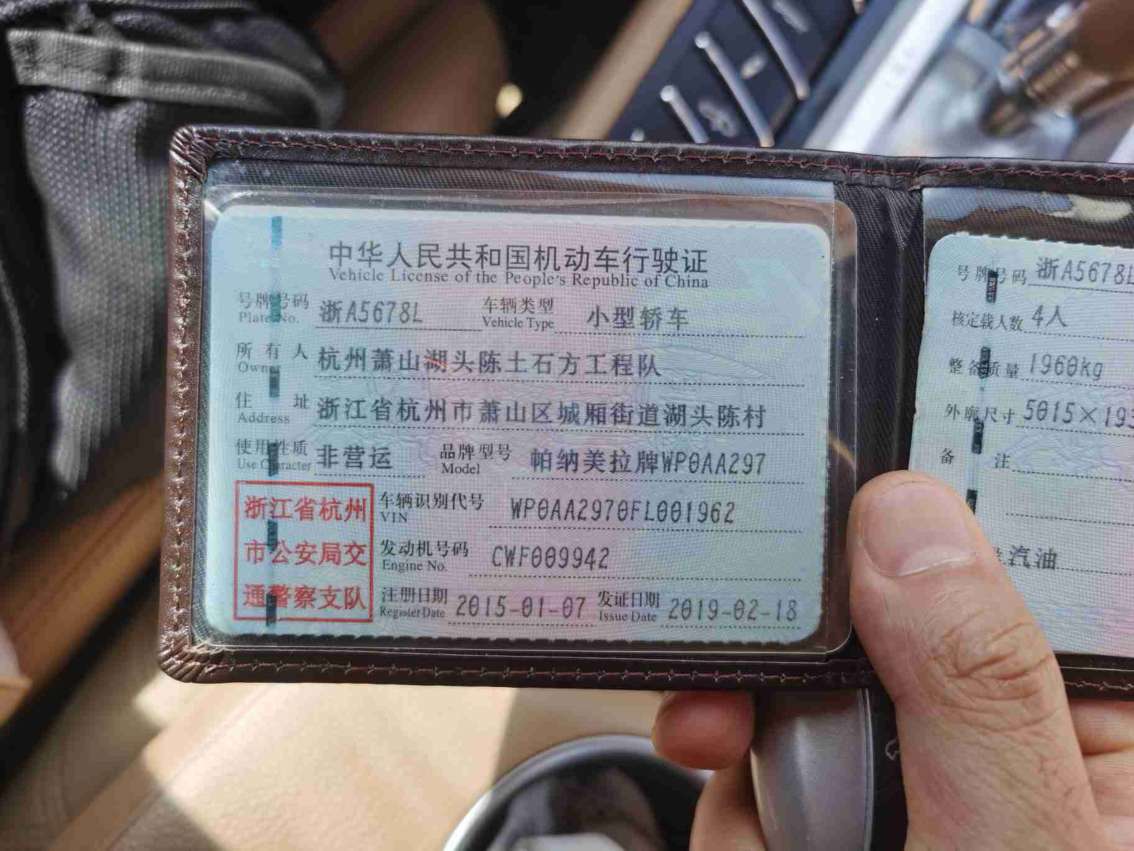 中华人民共和国机动车行驶证
Vehicle License of the People's Republic of China
号牌号码 浙A5678L 车辆类型 小型轿车
Plate No. Vehicle Type
所有人 杭州萧山湖头陈土石方工程队
Owner
住址 浙江省杭州市萧山区城厢街道湖头陈村
Address
使用性质 非营运 品牌型号 帕纳美拉牌WP0AA297
Use Character Model
浙江省杭州市公安局交通警察支队
车辆识别代号 WP0AA2970FL001962
VIN
发动机号码 CWF009942
Engine No.
注册日期 2015-01-07 发证日期 2019-02-18
Register Date Issue Date
号牌号码 浙A5678L
核定载人数 4人
整备质量 1960kg
外廓尺寸 5015×193
备注
汽油